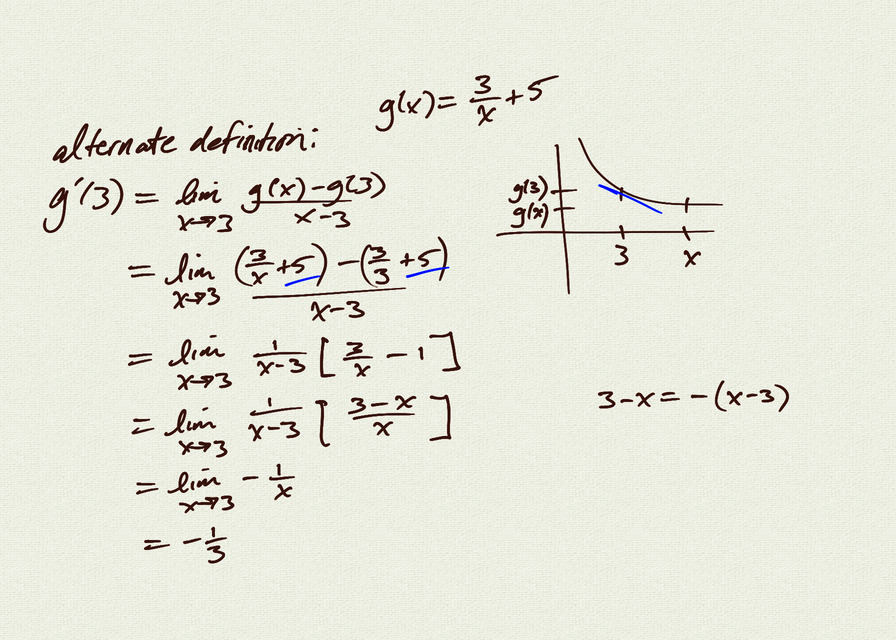 g(x) = 3/x + 5
alternate definition:
g'(3) = lim x→3 (g(x) - g(3))/(x-3)
= lim x→3 ((3/x + 5) - (3/3 + 5))/(x-3)
= lim x→3 1/(x-3) [3/x - 1]
= lim x→3 1/(x-3) [(3-x)/x]
= lim x→3 - 1/x
= - 1/3
g(3)
g(x)
3 x
3-x = -(x-3)